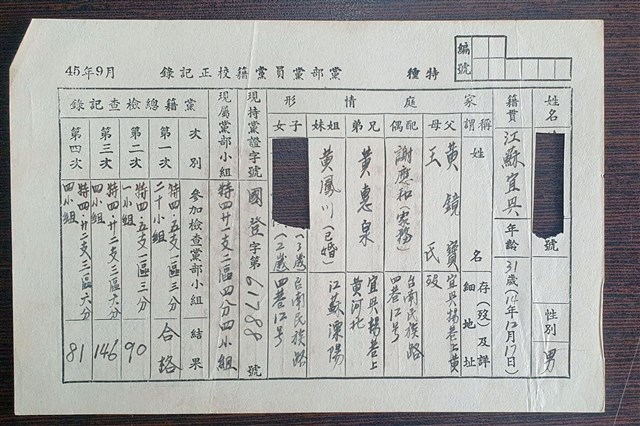 特種黨部黨員黨籍校正記錄
45年9月
編號
姓名
號
性別
男
籍貫
江蘇宜興
年齡
31歲(14年12月17日)
家庭情形
稱謂
姓名
存(歿)及詳細地址
父
黃鏡寶
宜興揚巷上黃
母
王氏
歿
配偶
謝應和(家務)
台南民族路四巷12号
兄弟
黃惠泉
宜興揚巷上黃河北
姐妹
黃鳳川(已婚)
江蘇溧陽
子女
(3歲
(2歲
台南民族路四巷12号
現持黨證字號
國登字第67788號
現屬黨部小組
特四廿一支三區四分四小組
黨籍總檢查記錄
次別
參加檢查黨部小組
結果
第一次
特四·五支一區三分二十小組
合格
第二次
特四·五支一區三分一小組
90
第三次
特四·廿二支三區六分四小組
146
第四次
特四·廿二支三區六分四小組
81